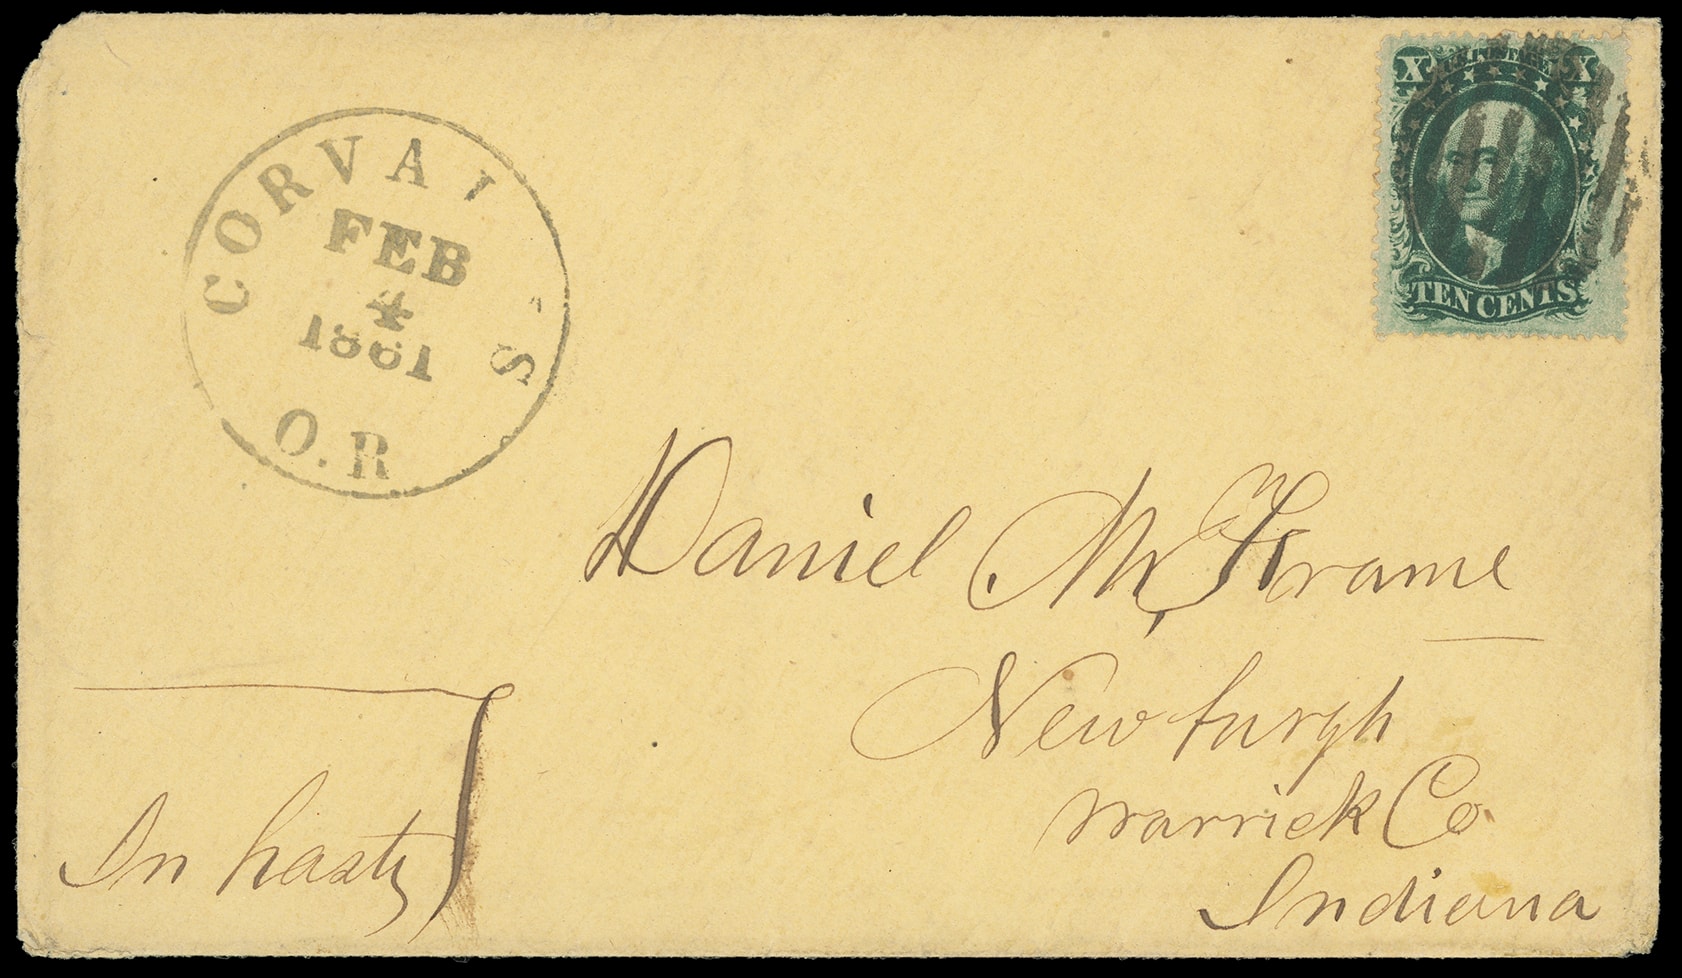 CORVALLIS
FEB
4
1861
O.R
X U.S. POSTAGE X
TEN CENTS
Daniel McKrame
Newburgh
Warrick Co.
Indiana
In hasty